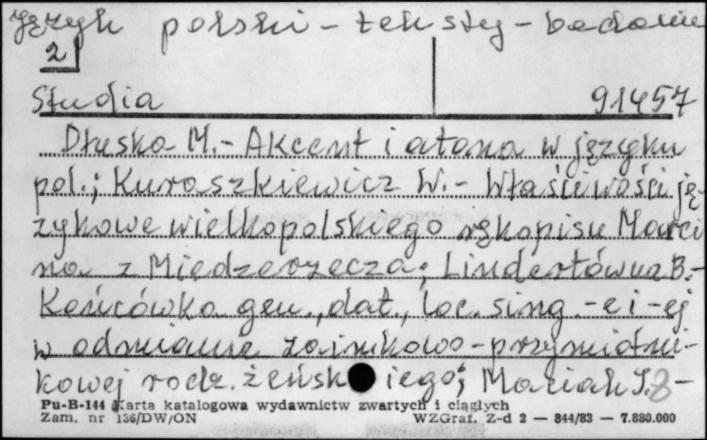 Język polski - teksty - badanie
2
Studia 91457
Dłuska M. - Akcent i atona w języku
pol.; Kuraszkiewicz W. - Właściwości ję-
zykowe wielkopolskiego rękopisu Marci
na z Międzerzecza; Lindertówna B.-
Końcówka gen., dat., loc. sing. -e i -ej
w odmianie zaimkowo-przymiotni-
kowej rodz. żeńskiego; Mariak J. -
Pu-B-144 Karta katalogowa wydawnictw zwartych i ciągłych
Zam. nr 136/DW/ON WZGraf. Z-d 2 — 844/83 — 7.880.000